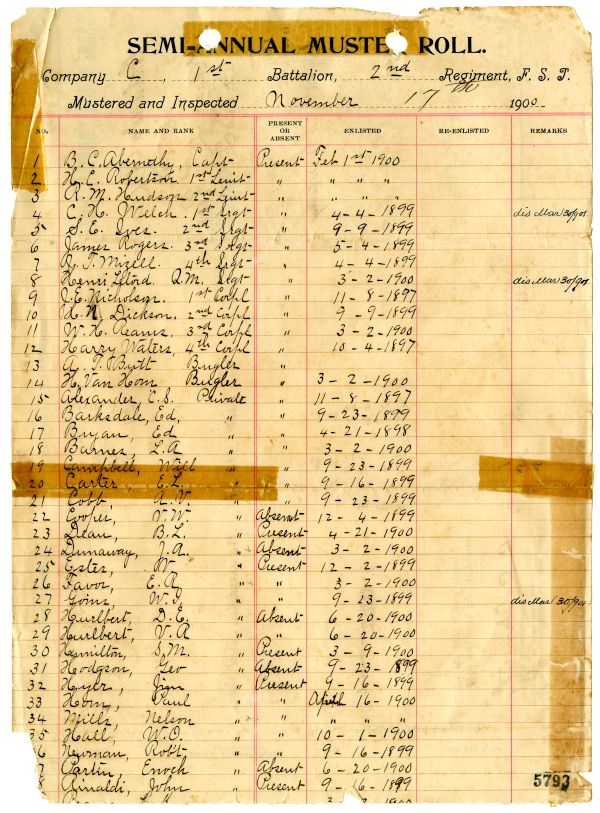 SEMI-ANNUAL MUSTER ROLL.
Company C, 1st Battalion, 2nd Regiment, F. S. T.
Mustered and Inspected November 17th 1900
NO. NAME AND RANK PRESENT OR ABSENT ENLISTED RE-ENLISTED REMARKS
1 B. C. Abernethy, Capt Present Feb 1st 1900
2 H. C. Robertson 1st Leuit " " " "
3 R. M. Hudson 2nd Leuit " " " "
4 C. H. Welch. 1st Srgt " 4-4-1899 dis Mar 30/901
5 S. E. Ives. 2nd Srgt " 9-9-1899
6 James Rogers. 3rd Srgt " 5-4-1899
7 R. T. Mizell. 4th Srgt " 4-4-1899
8 Henri Q.M. Srgt " 3-2-1900 dis Mar 30/901
9 J. E. Nicholson. 1st Corpl " 11-8-1897
10 H. N. Dickson. 2nd Corpl " 9-9-1899
11 W. H. Reams. 3rd Corpl " 3-2-1900
12 Harry Waters, 4th Corpl " 10-4-1897
13 A. T. Bytt Bugler "
14 H. Van Horn Bugler " 3-2-1900
15 Alexander, C. S. Private " 11-8-1897
16 Barksdale, Ed, " " 9-23-1899
17 Bryan, Ed " " 4-21-1898
18 Barnes, L. A " " 3-2-1900
19 Campbell, Will " " 9-23-1899
20 Carter, E. L. " " 9-16-1899
21 Cobb, A. V. " " 9-23-1899
22 Cooper, V. W " Absent 12-4-1899
23 Dean, B. L. " Present 4-21-1900
24 Dunaway, J. A. " Absent 3-2-1900
25 Ester, W " Present 12-2-1899
26 Favor, E. R " " 3-2-1900
27 Goins, W. J. " " 9-23-1899 dis Mar 30/901
28 Hurlbert, D. E. " Absent 6-20-1900
29 Hurlbert, V. A " " 6-20-1900
30 Hamilton, S. M. " Present 3-9-1900
31 Hodgson, Geo " Absent 9-23-1899
32 Hyer, Jim " Present 9-16-1899
33 Horn, Paul " " April 16-1900
34 Mills, Nelson " " " " "
35 Hall, W. O. " " 10-1-1900
6 Newman, Robt " " 9-16-1899
7 Partin, Enoch " Absent 6-20-1900
8 Rinaldi, John " Present 9-16-1899
5793